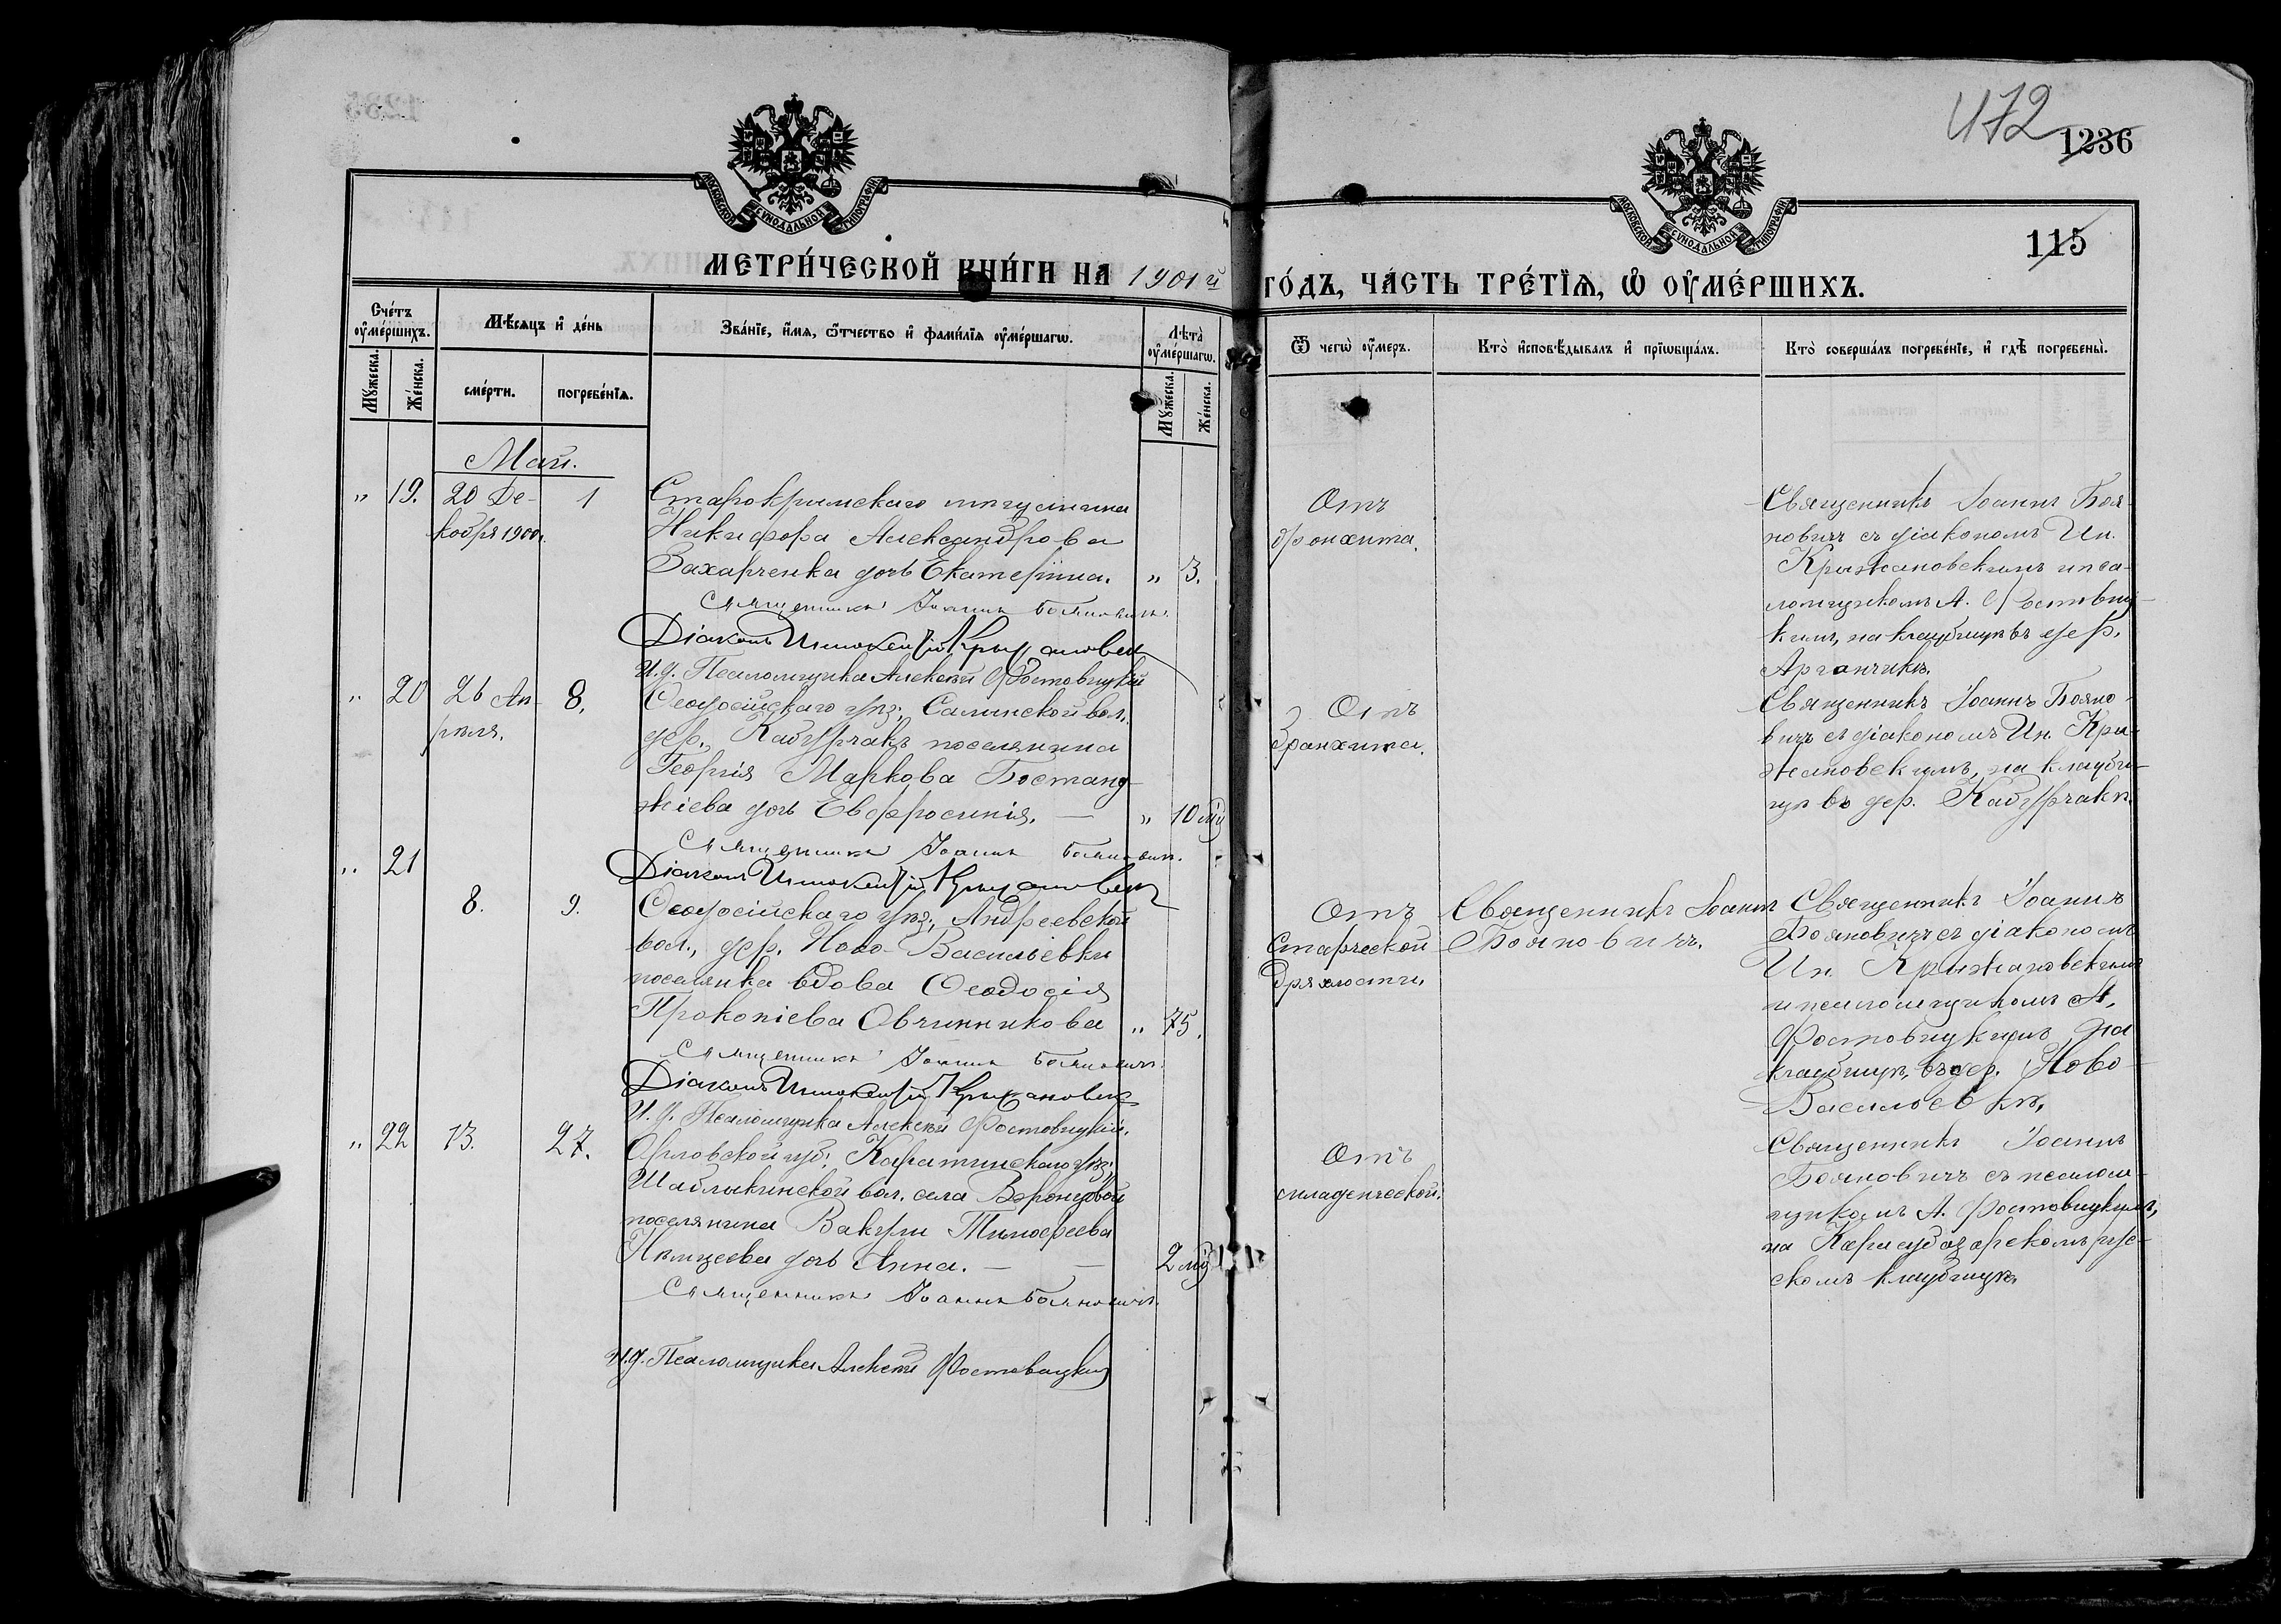 472
1236
115
МОСКОВСКОЙ СѴНОДАЛЬНОЙ ТИПОГРАФІИ
МОСКОВСКОЙ СѴНОДАЛЬНОЙ ТИПОГРАФІИ
МЕТРИ́ЧЕСКОЙ КНИ́ГИ НА 1901й ГО́ДЪ, ЧА́СТЬ ТРЕ́ТЇѦ, Ѡ҆ ОУ҆МЕ́РШИХЪ.
Сче́тъ оу҆ме́ршихъ.
Мꙋ́жеска.
Же́нска.
Мѣ́сѧцъ и҆ де́нь
сме́рти.
погребе́нїѧ.
Зва́нїе, и҆́мѧ, ѻ҆́тчество и҆ фами́лїѧ оу҆ме́ршагѡ.
Лѣ́та оу҆ме́ршагѡ.
Мꙋ́жеска.
Же́нска.
Ѿ чегѡ̀ оу҆́меръ.
Кто̀ и҆сповѣ́дывалъ и҆ прїѡбща́лъ.
Кто̀ соверша́лъ погребе́нїе, и҆ гдѣ̀ погребены̀.
Май.
" 19. 20 Де- 1
кабря 1900.
Старокрымскаго мѣщанина
Никифора Александрова
Захарченка дочь Екатерина. " 3.
Священникъ Іоаннъ Бояновичъ.
Діаконъ Иннокентій Крыжановскій
И.д. Псаломщика Алексѣй Фостовицкій
Отъ
бронхита.
Священникъ Іоаннъ Боя-
новичъ съ діакономъ Ин.
Крыжановскимъ и пса-
ломщикомъ А. Фостовиц-
кимъ, на кладбищѣ въ дер.
Арганчикъ.
" 20 26 Ап- 8.
рѣля.
Ѳеодосійскаго уѣз. Салынской вол.
дер. Кабурчакъ поселянина
Георгія Маркова Бостанд-
жіева дочь Евфросинія. — " 10 мц
Священникъ Іоаннъ Бояновичъ.
Діаконъ Иннокентій Крыжановскій
Отъ
бранхита.
Священникъ Іоаннъ Бояно-
вичъ съ діакономъ Ин. Кры-
жановскимъ, на кладби-
щѣ въ дер. Кабурчакѣ.
" 21
8. 9.
Ѳеодосійскаго уѣз. Андреевской
вол., дер. Ново-Васильевки
поселянка вдова Ѳеодосія
Прокопіева Овчинникова " 75.
Священникъ Іоаннъ Бояновичъ.
Діаконъ Иннокентій Крыжановскій
И.д. Псаломщика Алексѣй Фостовицкій.
Отъ
старческой
дряхлости.
Священникъ Іоаннъ
Бояновичъ.
Священникъ Іоаннъ
Бояновичъ съ діакономъ
Ин. Крыжановскимъ
и псаломщикомъ А.
Фостовицкимъ, на
кладбищѣ, въ дер. Ново-
Васильевкѣ.
" 22 13. 27.
Орловской губ. Каратинскаго уѣз.
Шаблыкинской вол. села Воронцовой
поселянина Вакулы Тимоѳеева
дочь Анна. — — 2 мц
Священникъ Іоаннъ Бояновичъ.
И.д. Псаломщика Алексѣй Фостовицкій
Отъ
младенческой.
Священникъ Іоаннъ
Бояновичъ съ псалом-
щикомъ А. Фостовицкимъ,
на Карасубазарскомъ рус-
скомъ кладбищѣ.